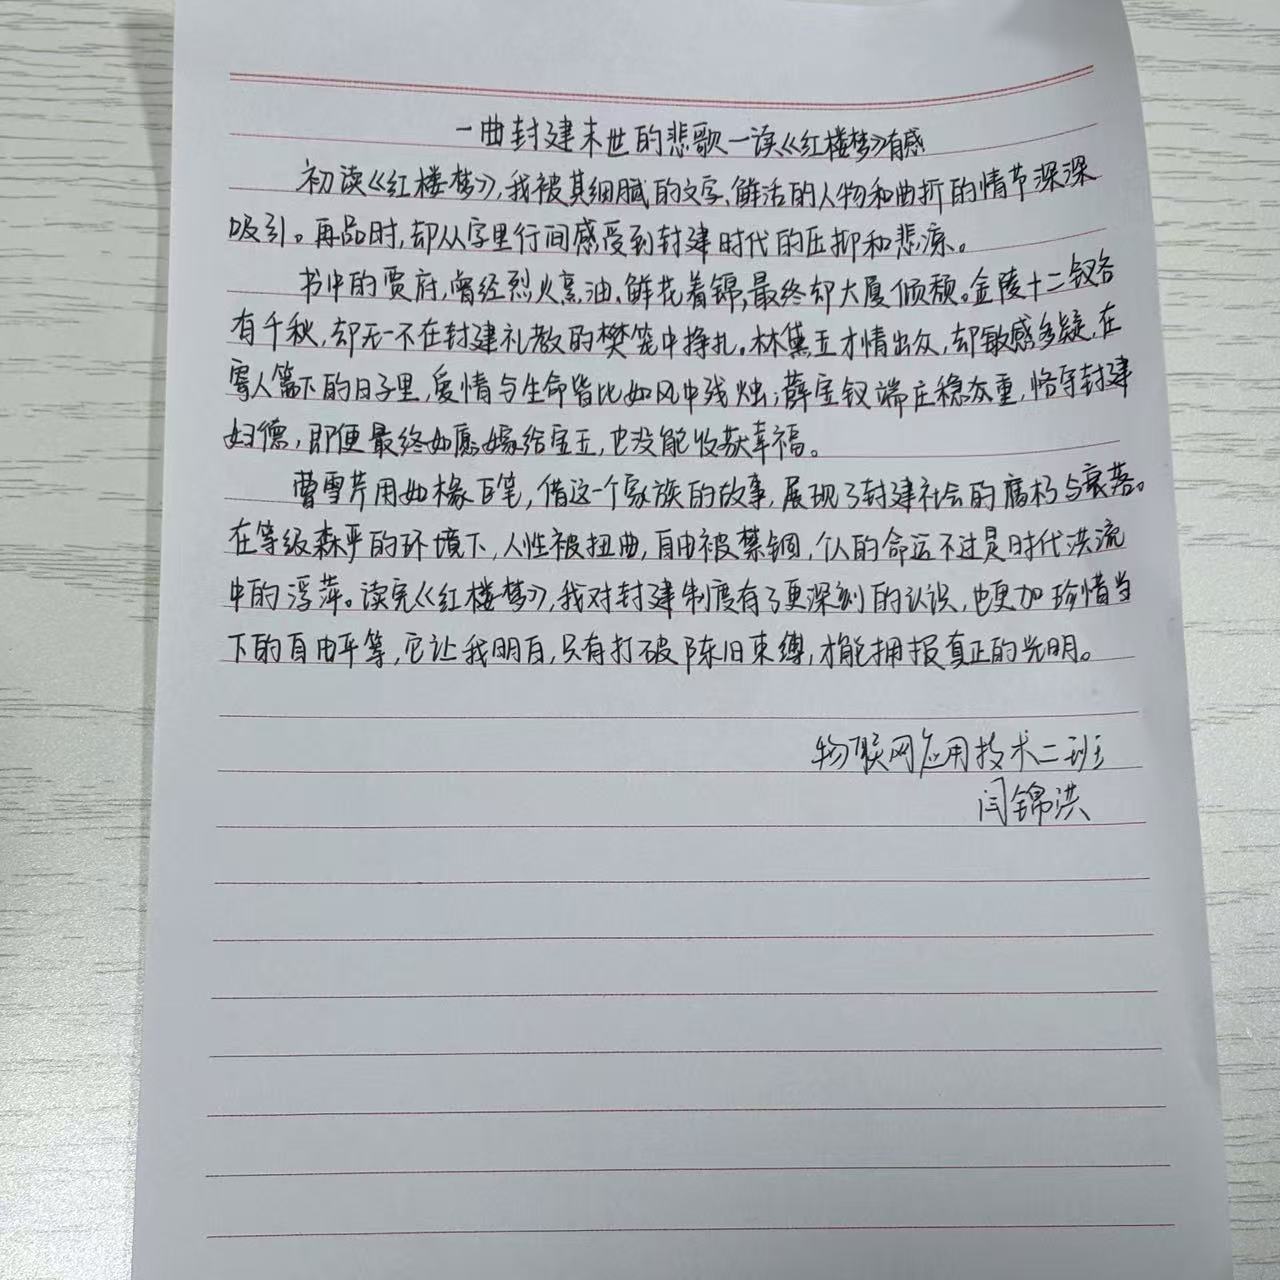 一曲封建末世的悲歌一读《红楼梦》有感
初读《红楼梦》,我被其细腻的文字、鲜活的人物和曲折的情节深深
吸引。再品时,却从字里行间感受到封建时代的压抑和悲凉。
书中的贾府,曾经烈火烹油、鲜花着锦,最终却大厦倾颓。金陵十二钗各
有千秋,却无一不在封建礼教的樊笼中挣扎。林黛玉才情出众,却敏感多疑,在
寄人篱下的日子里,爱情与生命皆比如风中残烛;薛宝钗端庄稳重,恪守封建
妇德,即便最终如愿嫁给宝玉,也没能收获幸福。
曹雪芹用如椽巨笔,借这一个家族的故事,展现了封建社会的腐朽与衰落。
在等级森严的环境下,人性被扭曲,自由被禁锢,个人的命运不过是时代洪流
中的浮萍。读完《红楼梦》,我对封建制度有了更深刻的认识,也更加珍惜当
下的自由平等,它让我明白,只有打破陈旧束缚,才能拥抱真正的光明。
物联网应用技术二班
闫锦洪